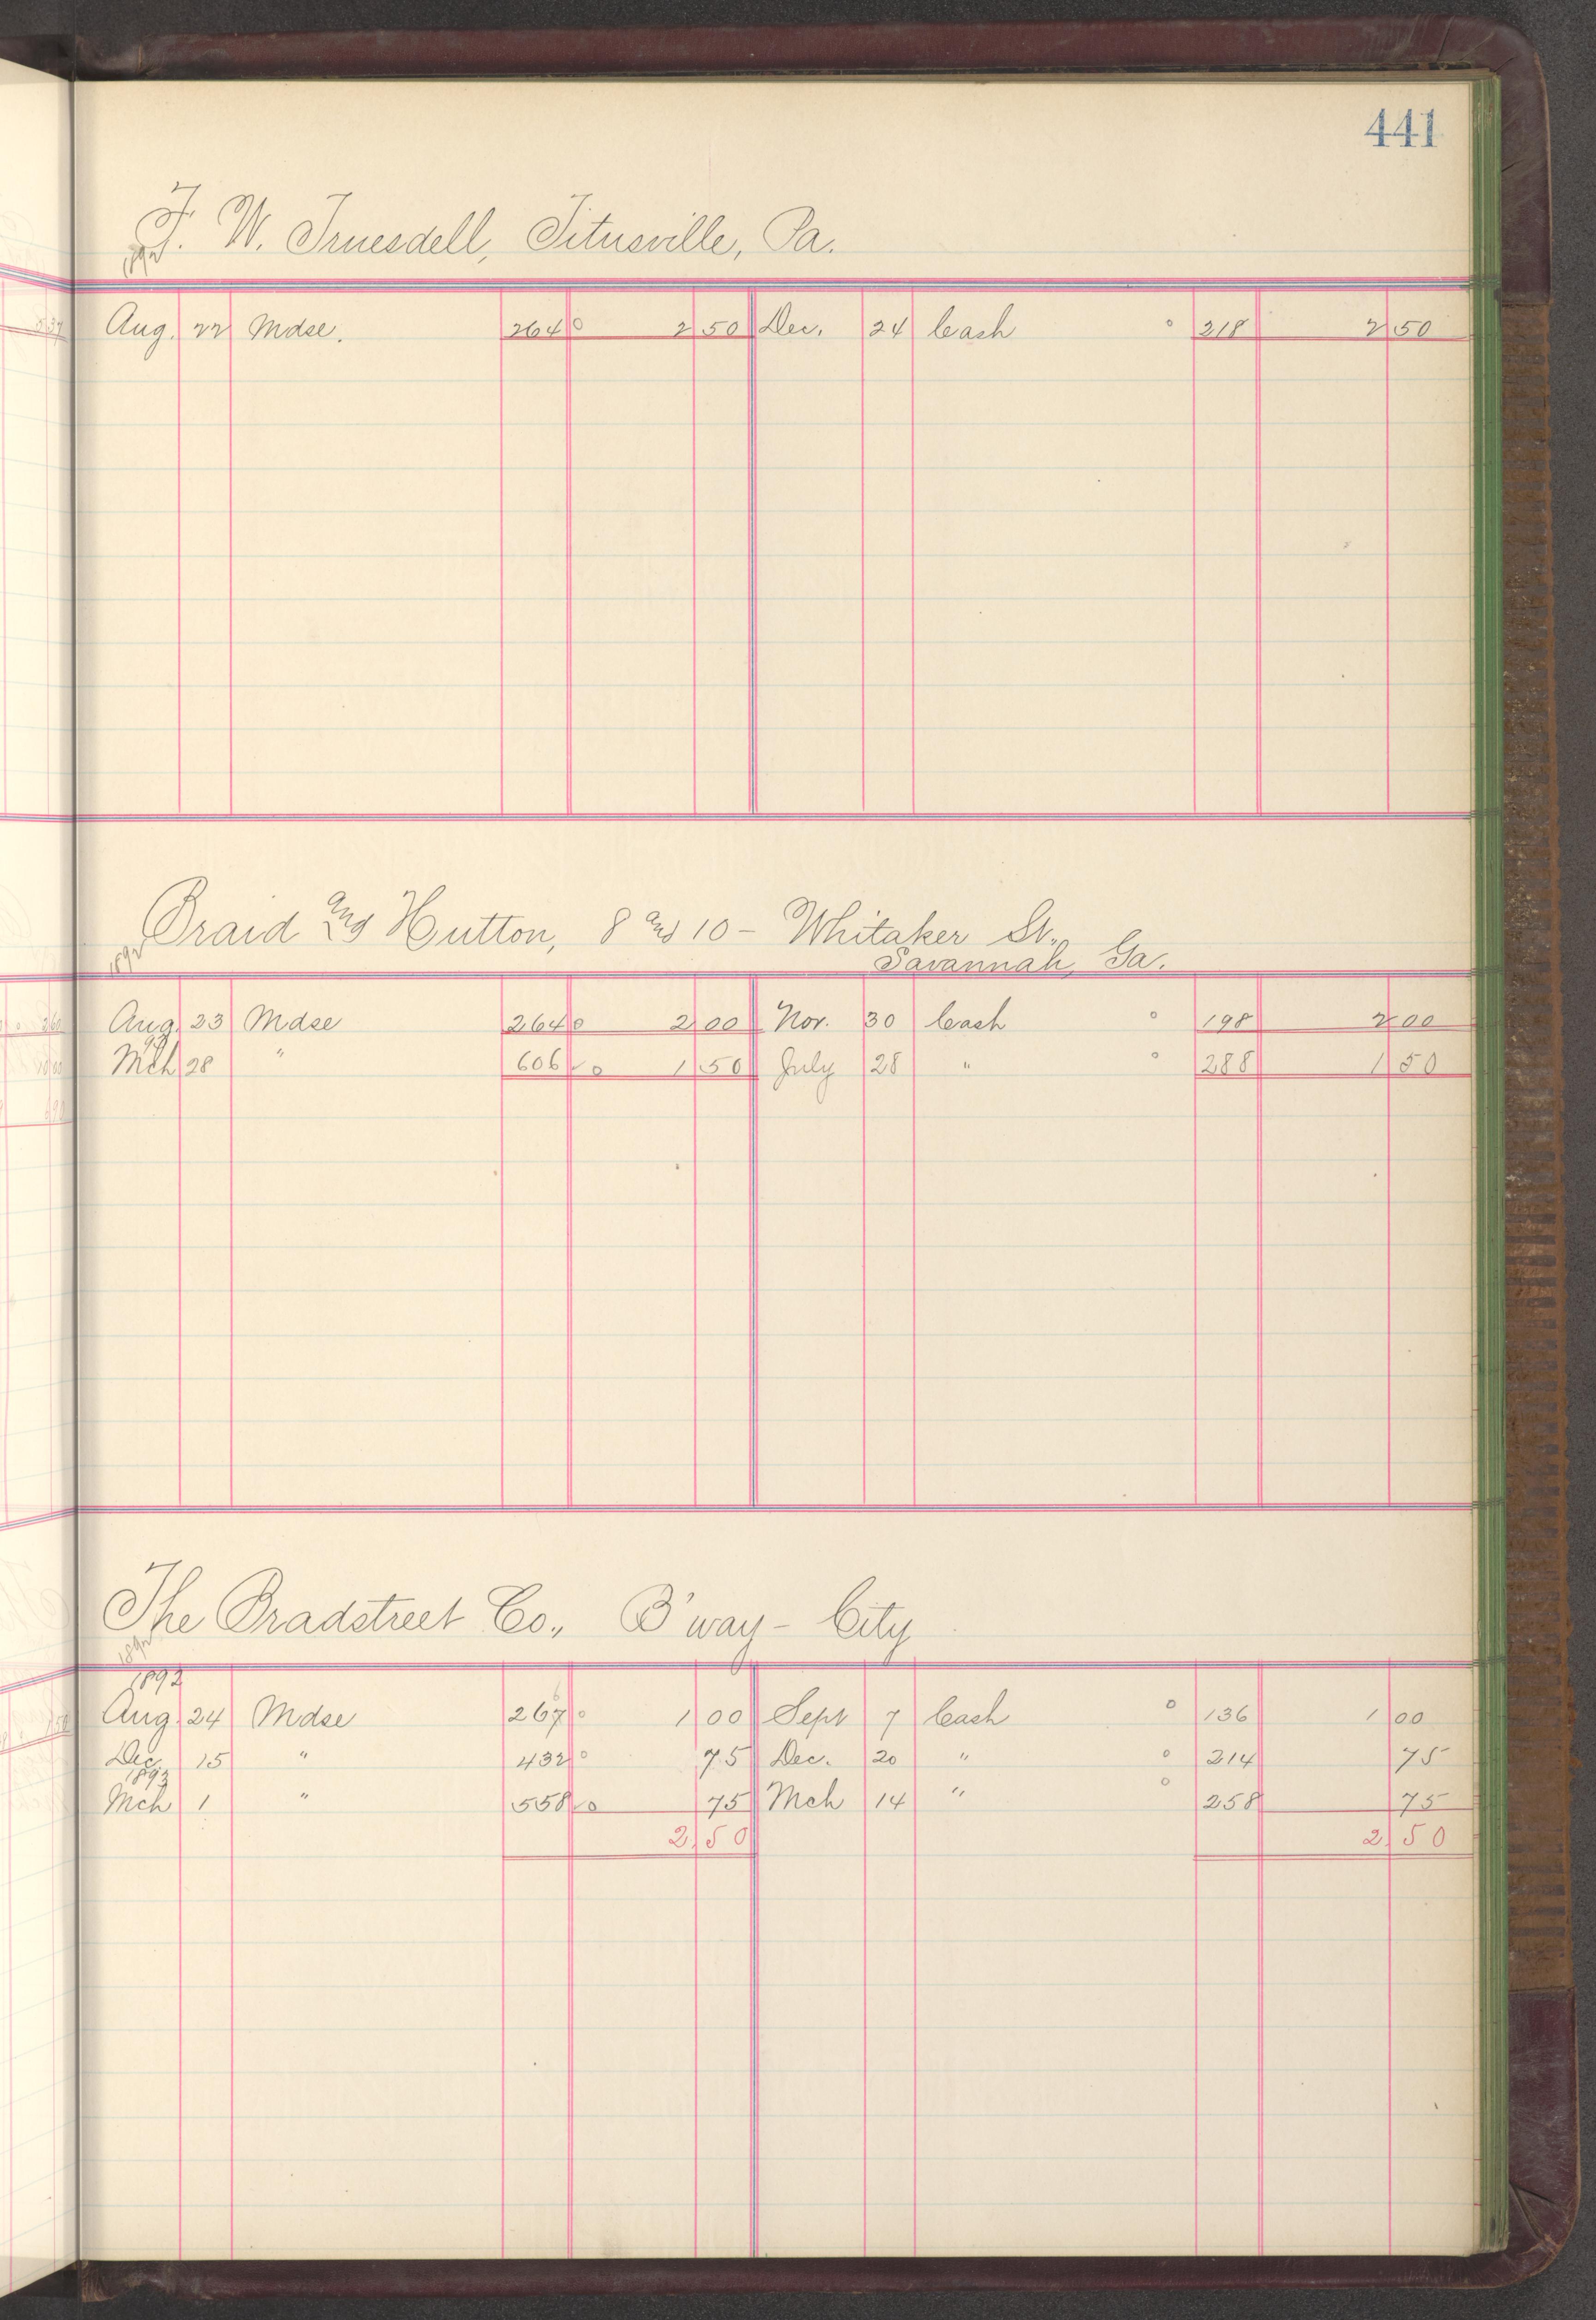 441
F. W. Truesdell, Titusville, Pa.
1892
Aug. 22 Mdse. 264 0 2 50 Dec. 24 Cash 0 218 2 50
Braid and Hutton, 8 and 10 - Whitaker St.,
Savannah, Ga.
1892
Aug. 23 Mdse 264 0 2 00 Nov. 30 Cash 0 198 2 00
93
Mch 28 " 606 ✓ 0 1 50 July 28 " 0 288 1 50
The Bradstreet Co., B'way - City
1892
1892
Aug. 24 Mdse 267 0 1 00 Sept 7 Cash 0 136 1 00
Dec. 15 " 432 0 75 Dec. 20 " 0 214 75
1893
Mch 1 " 558 ✓ 0 75 Mch 14 " 0 258 75
2 50 2 50